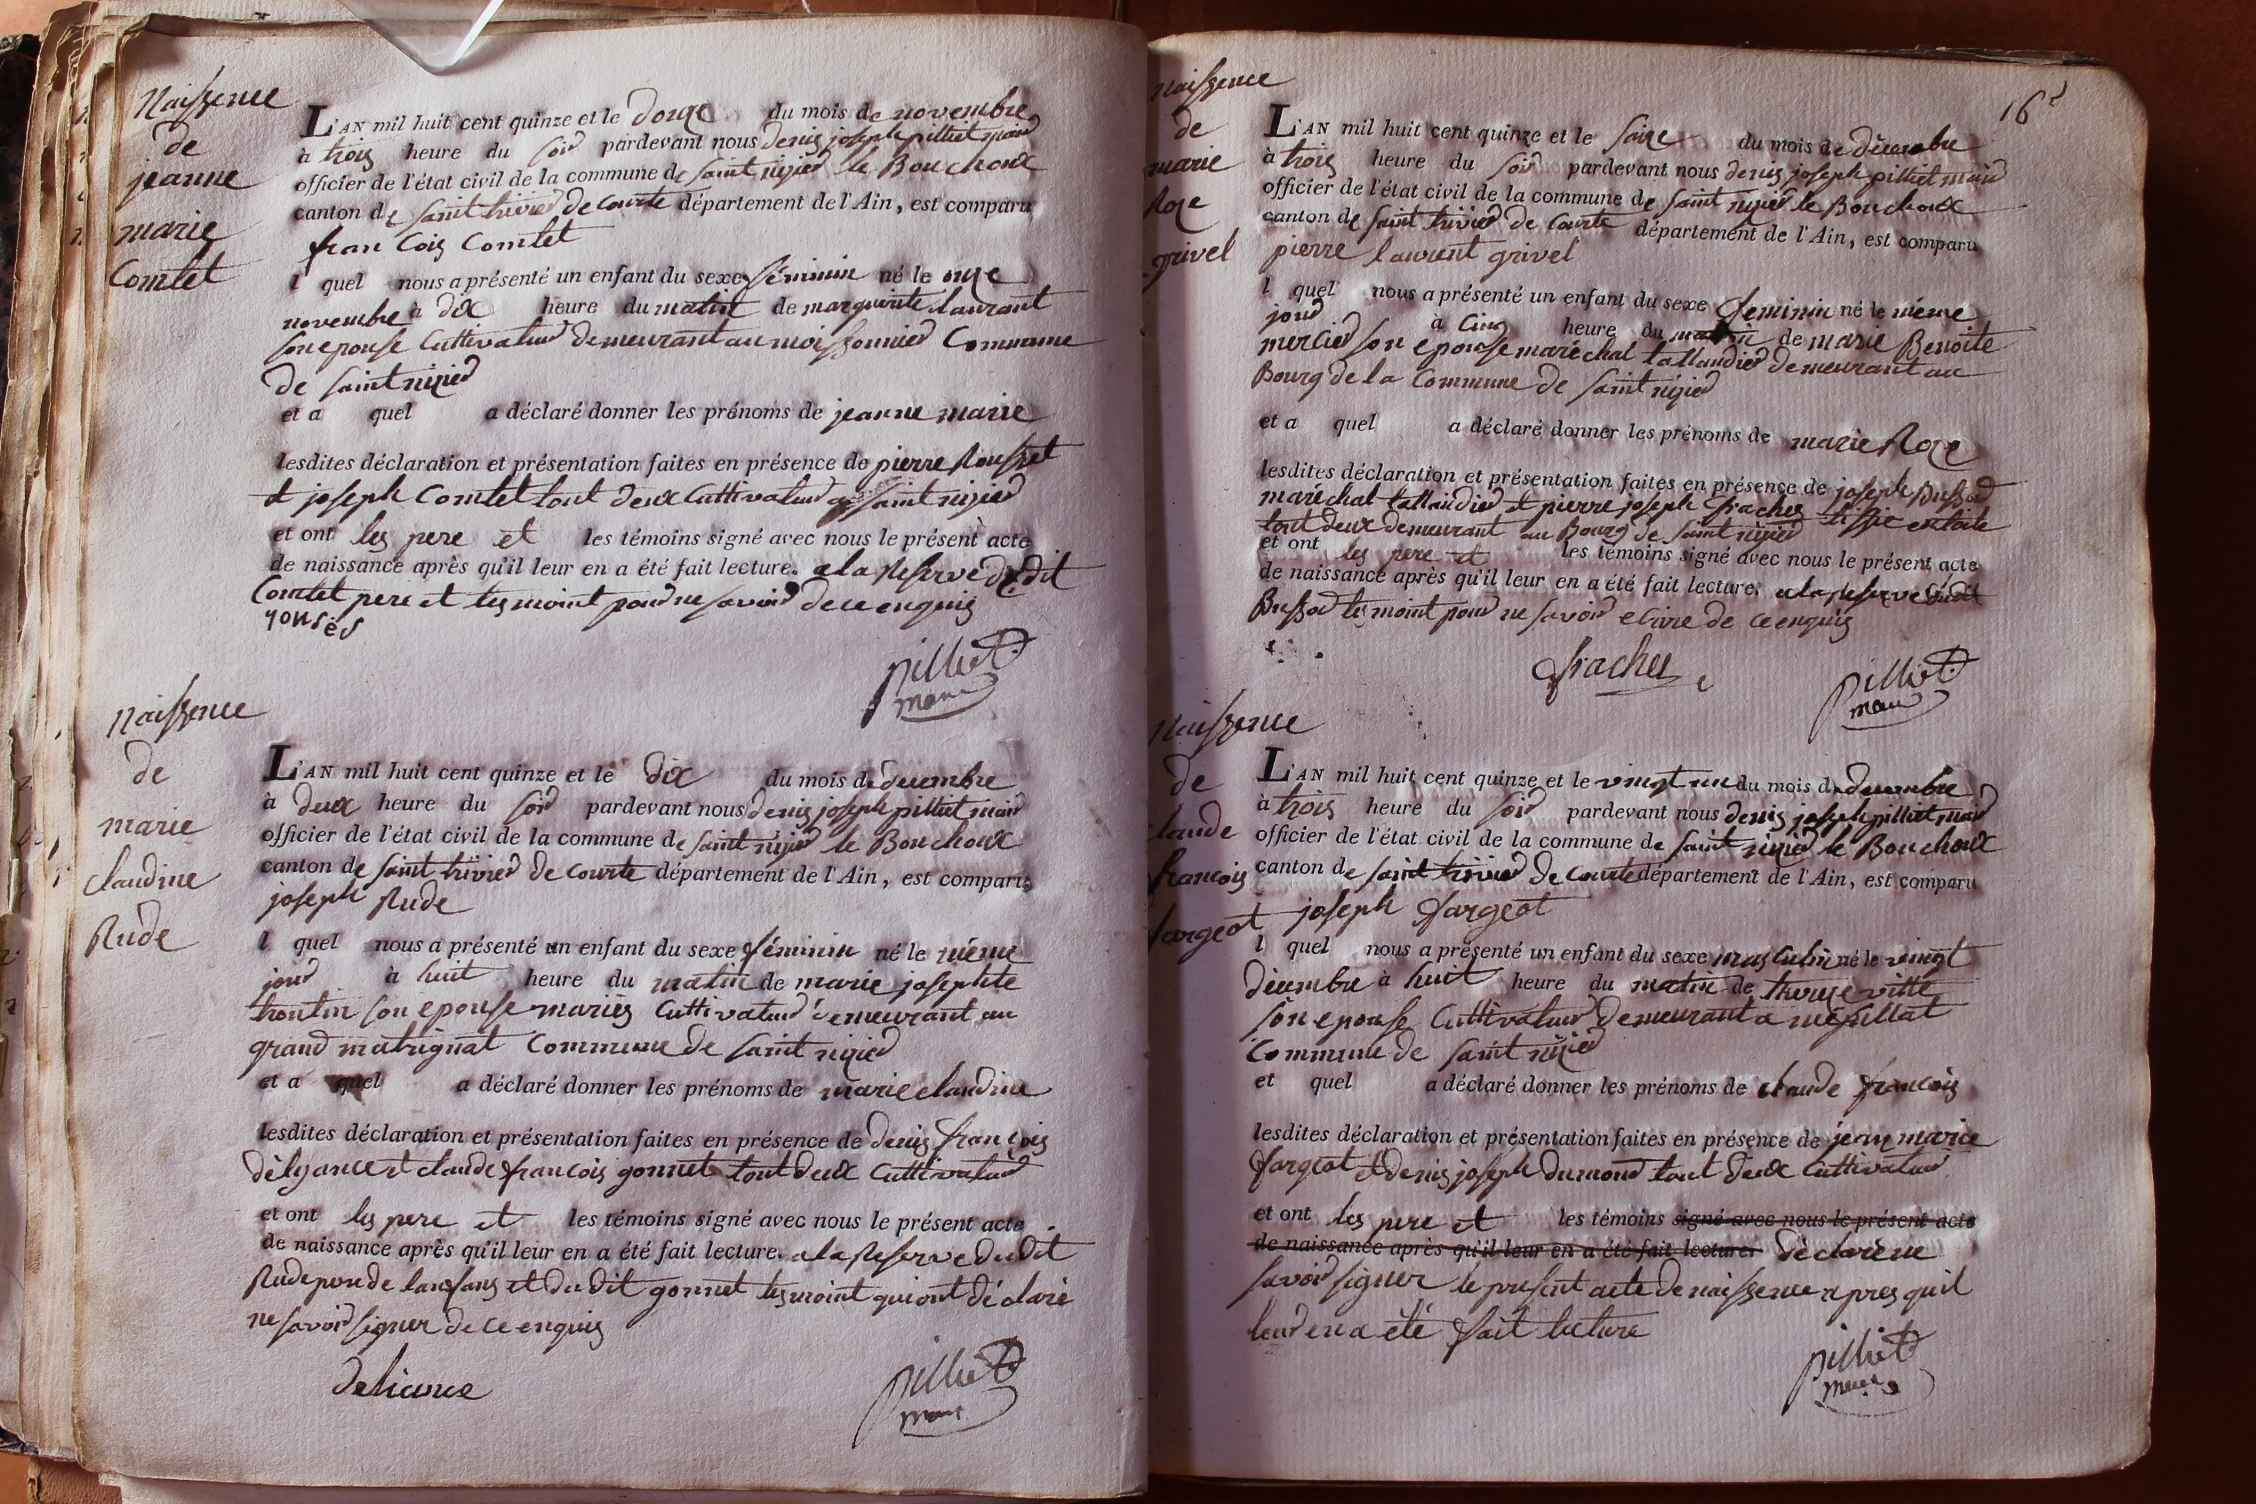 Naissence
de
jeanne
marie
Comtet
L'AN mil huit cent quinze et le douze du mois de novembre
à trois heure du soir pardevant nous denis joseph pilliet maire
officier de l'état civil de la commune de saint nizier le Bouchoux
canton de saint trivier de courte département de l'Ain, est comparu
francois Comtet
l quel nous a présenté un enfant du sexe féminin né le onze
novembre à dix heure du matin de marguerite laurant
son epouse Cultivateur demeurant au moissonnier Commune
de saint nizier
et a quel a déclaré donner les prénoms de jeanne marie
lesdites déclaration et présentation faites en présence de pierre Rousset
et joseph Comtet tout deux Cultivateur a saint nizier
et ont les pere et les témoins signé avec nous le présent acte
de naissance après qu'il leur en a été fait lecture. a la Reserve dudit
Comtet pere et tesmoint pour ne savoir de ce enquis
pilliet
maire
Naissence
de
marie
claudine
Rude
L'AN mil huit cent quinze et le dix du mois de decembre
à deux heure du soir pardevant nous denis joseph pilliet maire
officier de l'état civil de la commune de saint nizier le Bouchoux
canton de saint trivier de courte département de l'Ain, est comparu
joseph Rude
l quel nous a présenté un enfant du sexe féminin né le même
jour à huit heure du matin de marie josephte
trontin son epouse mariés Cultivateur demeurant au
grand matrignat Commune de saint nizier
et a quel a déclaré donner les prénoms de marie claudine
lesdites déclaration et présentation faites en présence de denis francois
délyance et claude francois gonnet tout deux Cultivateur
et ont les pere et les témoins signé avec nous le présent acte
de naissance après qu'il leur en a été fait lecture. a la Reserve dudit
Rude de lanfans et dudit gonnet tesmoint qui ont déclaré
ne savoir signer de ce enquis
deliance
pilliet
maire
16
Naissence
de
marie
Roze
grivel
L'AN mil huit cent quinze et le saize du mois de décembre
à trois heure du soir pardevant nous denis joseph pilliet maire
officier de l'état civil de la commune de saint nizier le Bouchoux
canton de saint trivier de courte département de l'Ain, est comparu
pierre laurent grivel
l quel nous a présenté un enfant du sexe feminin né le même
jour à cinq heure du matin de marie Benoite
mercier son epouse maréchal tallandier demeurant au
Bourg de la Commune de saint nizier
et a quel a déclaré donner les prénoms de marie Roze
lesdites déclaration et présentation faites en présence de joseph Bussod
maréchal tallandier et pierre joseph frachet en toile
tout deux demeurant au Bourg de saint nizier
et ont les pere et les témoins signé avec nous le présent acte
de naissance après qu'il leur en a été fait lecture. a la Reserve dudit
Bussod tesmoint pour ne savoir ecrire de ce enquis
frachet
pilliet
maire
Naissence
de
claude
francois
fargeot
L'AN mil huit cent quinze et le vingt un du mois de decembre
à trois heure du soir pardevant nous denis joseph pilliet maire
officier de l'état civil de la commune de saint nizier le Bouchoux
canton de saint trivier de courte département de l'Ain, est comparu
joseph fargeot
l quel nous a présenté un enfant du sexe masculin né le vingt
décembre à huit heure du matin de therese vitte
son epouse Cultivateur demeurant a mépillat
Commune de saint nizier
et quel a déclaré donner les prénoms de claude francois
lesdites déclaration et présentation faites en présence de jean marie
fargeot et denis joseph dumond tout deux Cultivateur
et ont les pere et les témoins signé avec nous le présent acte
de naissance après qu'il leur en a été fait lecture. déclaré ne
savoir signer le present acte de naissence apres quil
leur en a été fait lecture
pilliet
maire